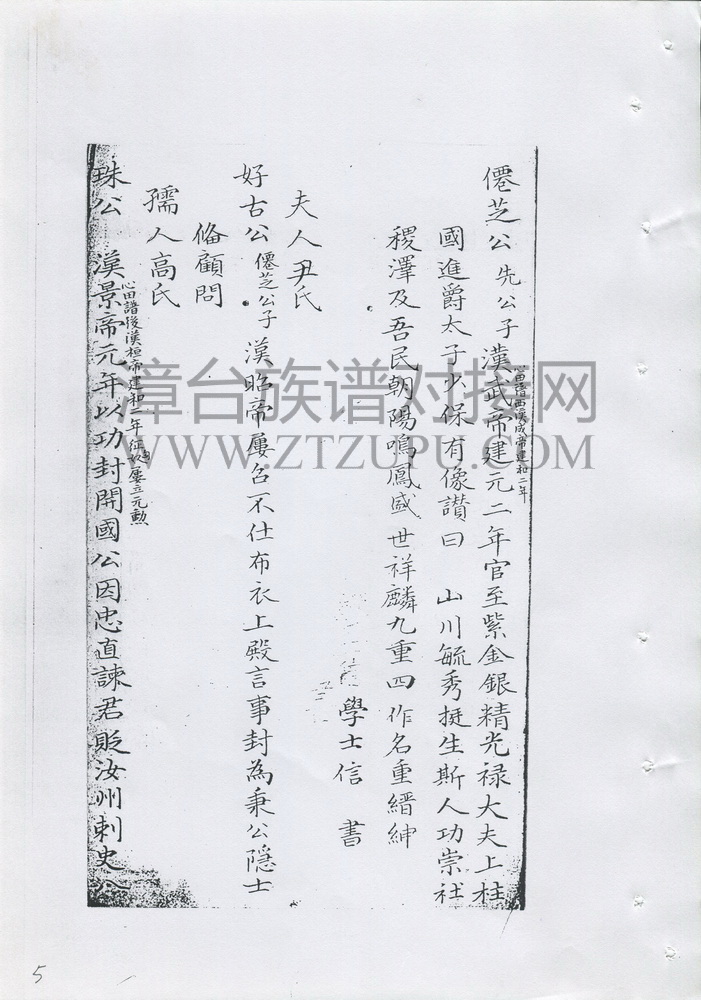 僊芝公 先公子 漢武帝建元二年官至紫金銀精光禄大夫上柱
心田譜西漢成帝建和二年
國進爵太子少保有像讃曰 山川毓秀挺生斯人功崇社
稷澤及吾民朝陽鳴鳳盛世祥麟九重四作名重縉紳
學士信 書
夫人尹氏
好古公 僊芝公子 漢昭帝屢召不仕布衣上殿言事封為秉公隱士
俻顧問
孺人高氏
心田譜後漢桓帝建和二年征 屢立元勲
珠公 漢景帝元年以功封開國公因忠直諫君貶汝州刺史公
漳台族谱对接网
WWW.ZTZUPU.COM
5